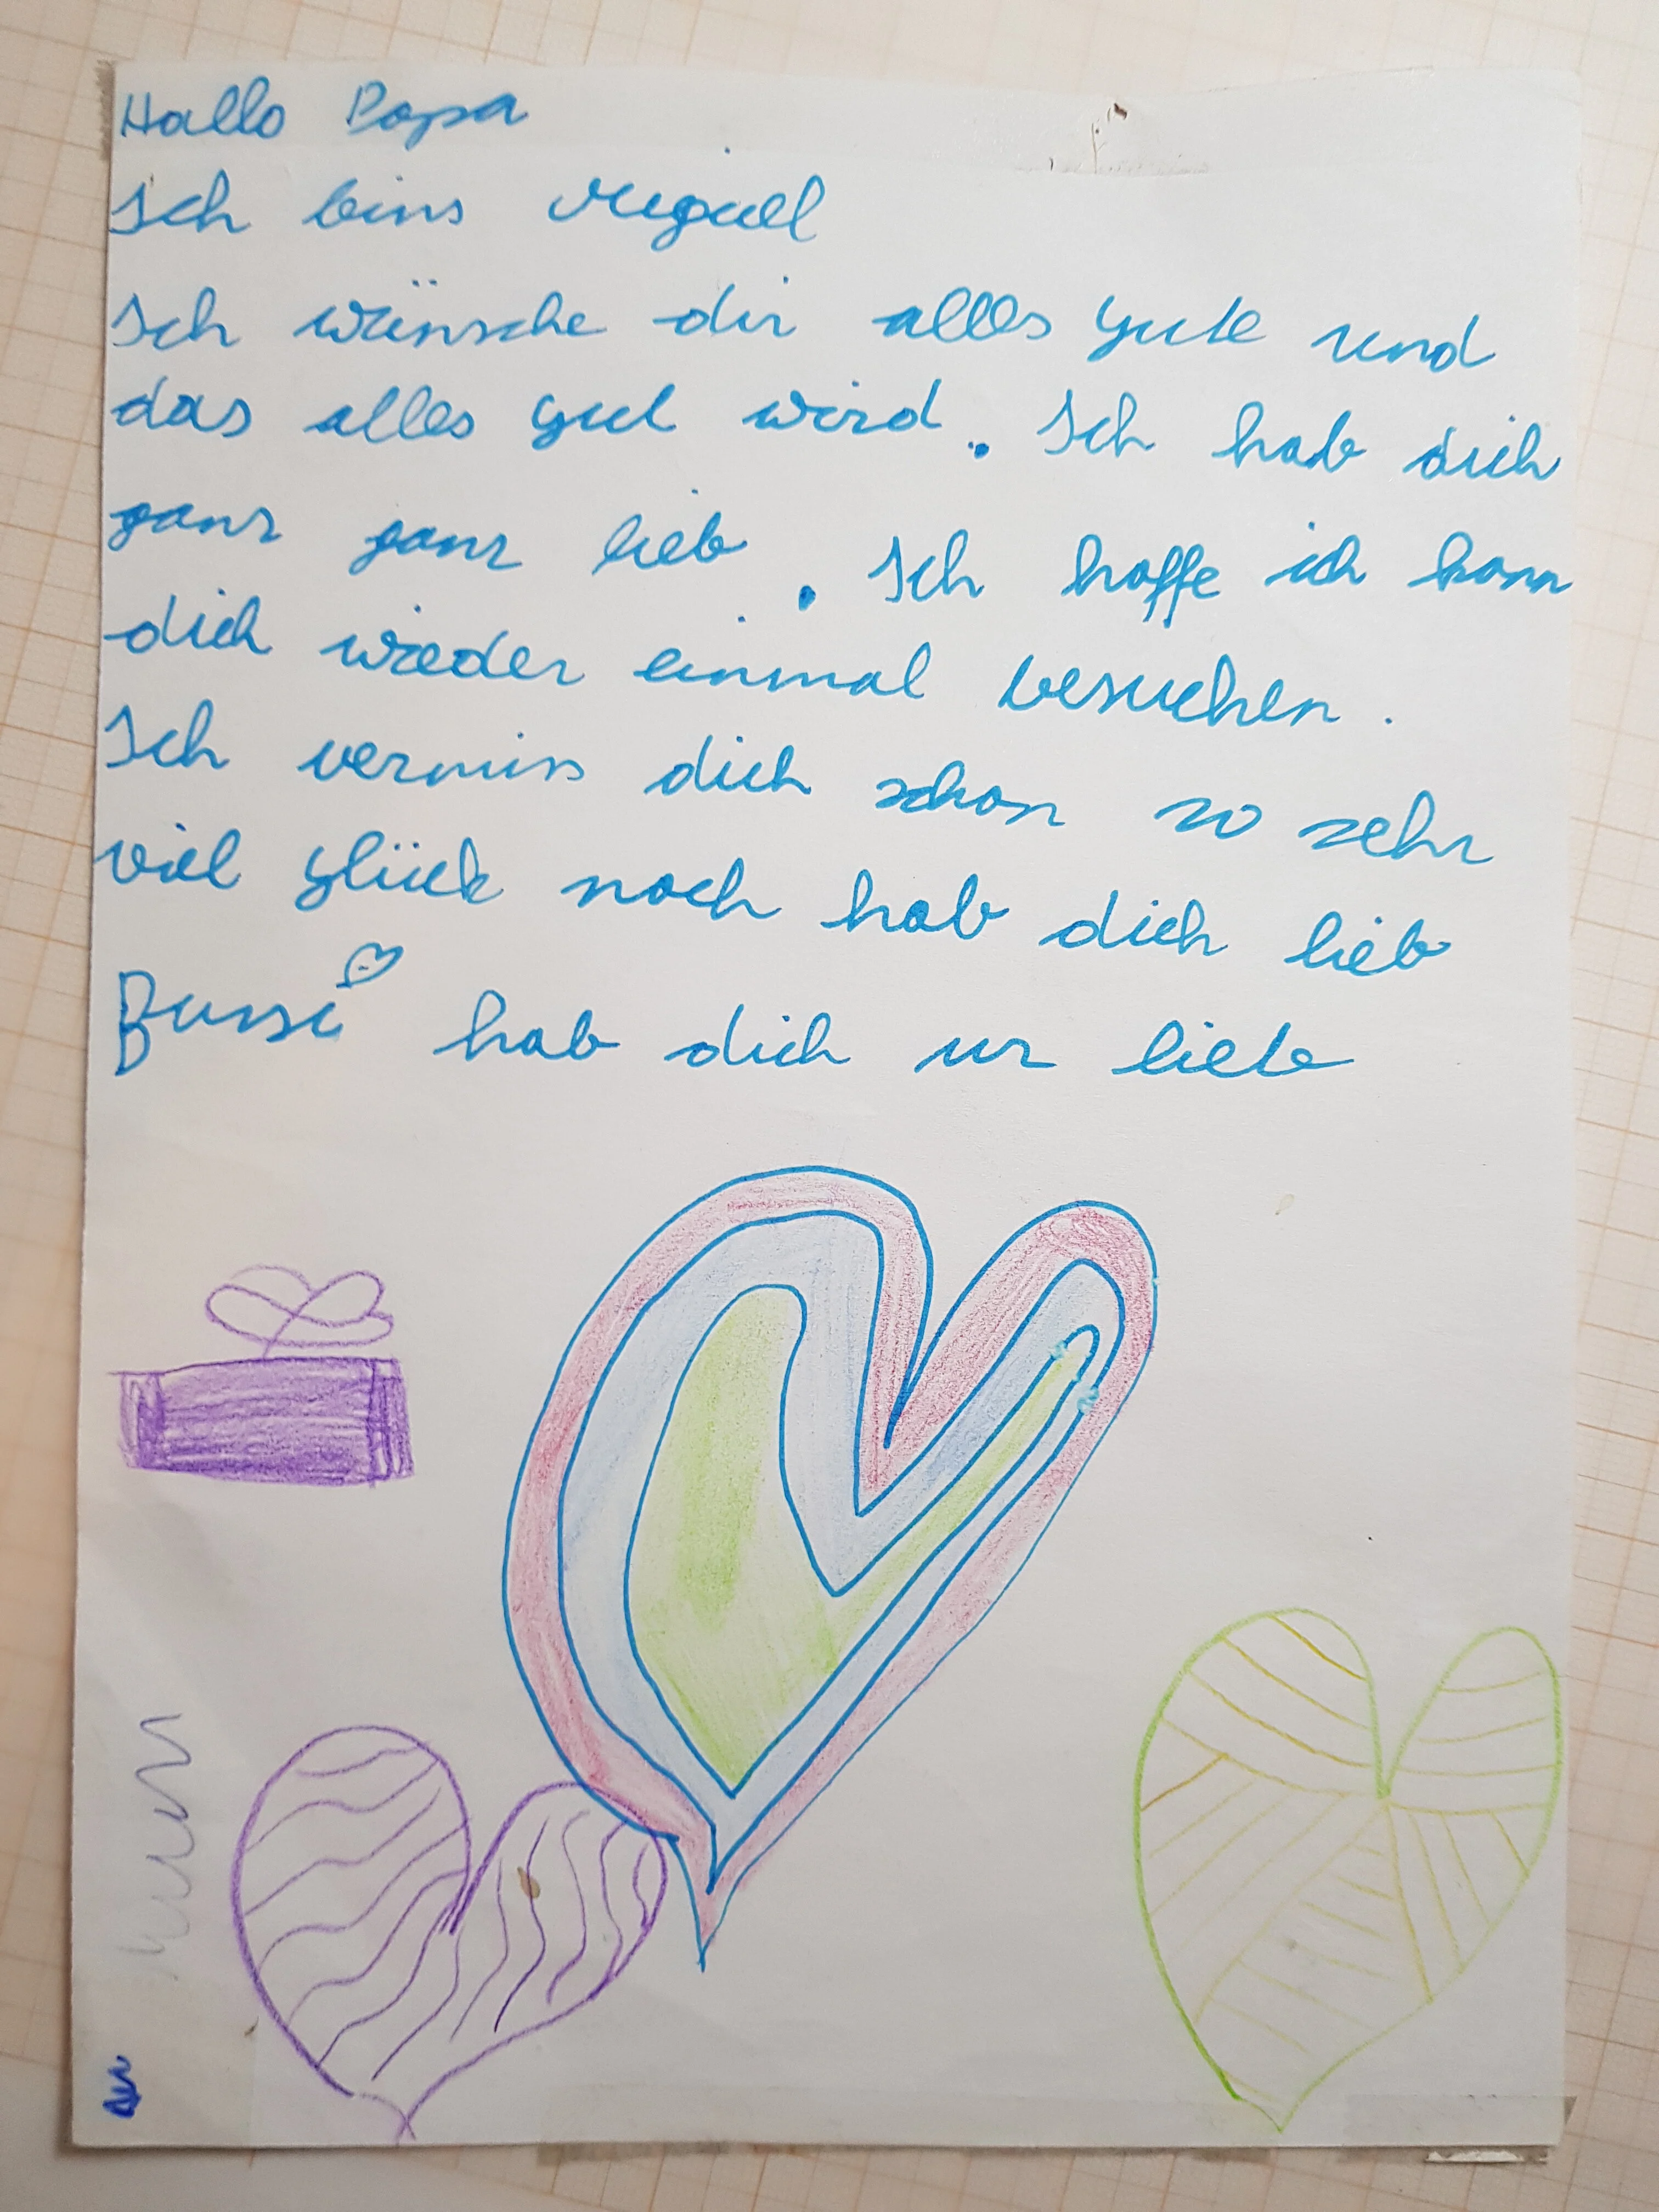 Hallo Papa
Ich bins Miguel
Ich wünsche dir alles gute und
das alles gut wird. Ich hab dich
ganz ganz lieb. Ich hoffe ich kann
dich wieder einmal besuchen.
Ich vermiss dich schon so sehr
viel glück noch hab dich lieb
Bussi hab dich ur lieb